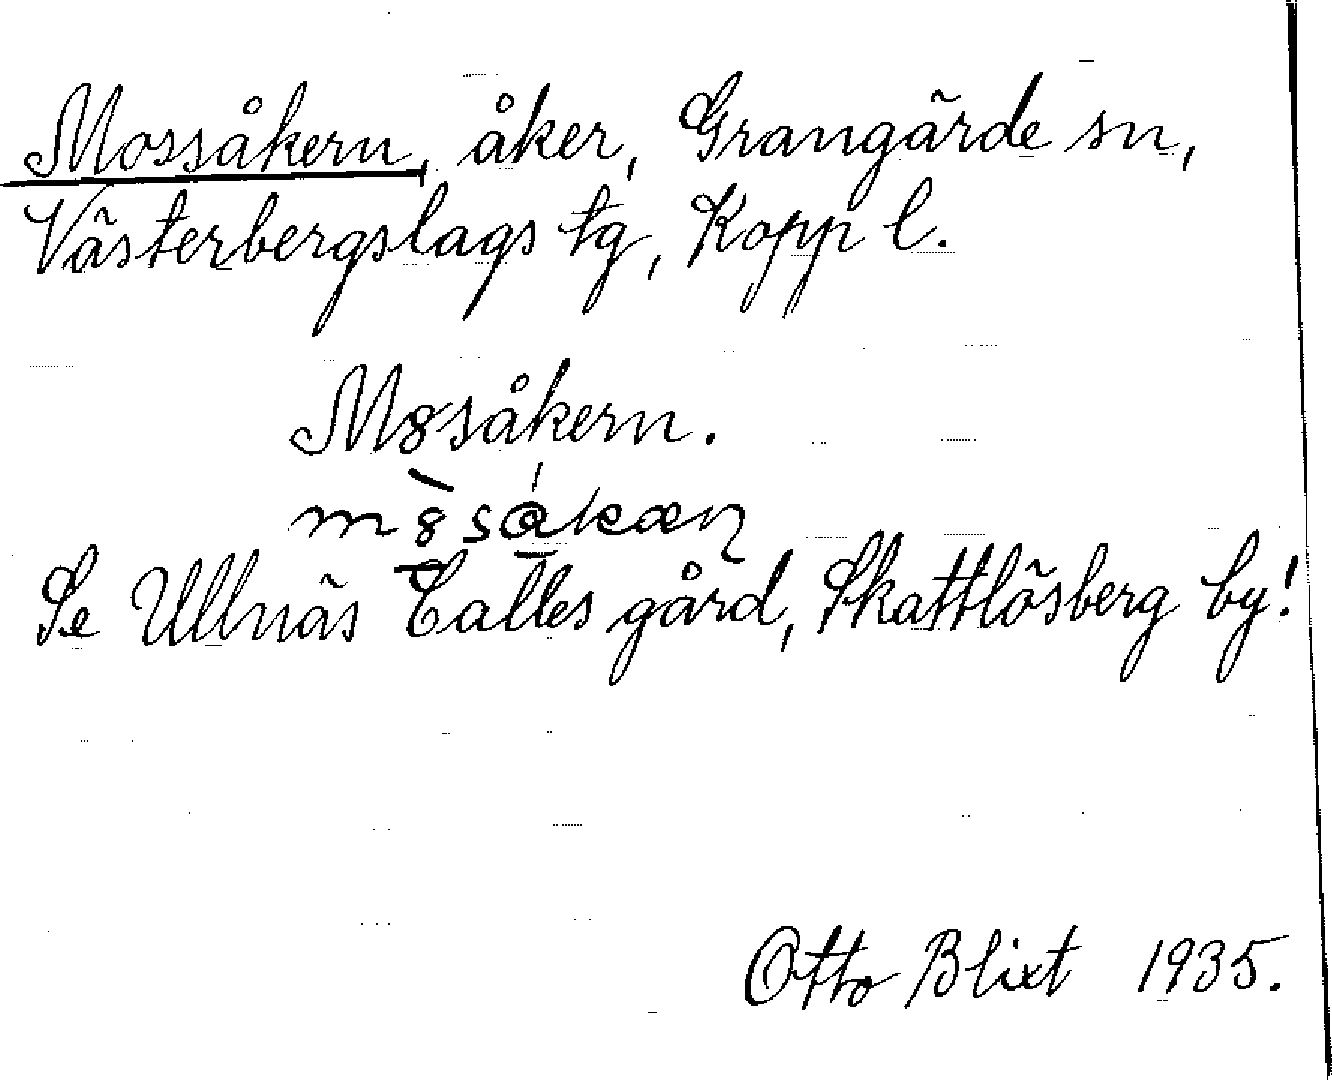 Mossåkern, åker, Grangärde sn,
Västerbergslags tg, Kopp l.
M8såkern.
Se Ullnäs Calles gård, Skattlösberg by!
Otto Blixt 1935.